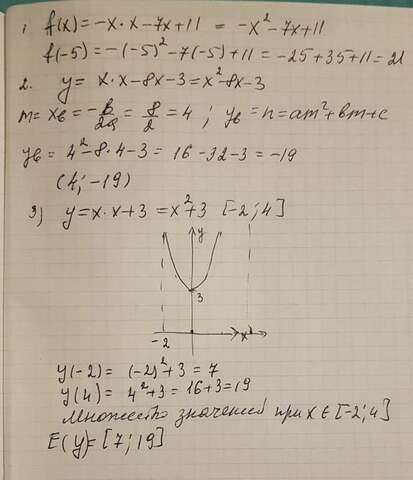 1. f(x)=-x·x-7x+11 = -x²-7x+11
f(-5)=-(-5)²-7(-5)+11=-25+35+11=21
2. y= x·x-8x-3=x²-8x-3
m=x_в=-в/2a=8/2=4; y_в=n=am²+вm+c
y_в=4²-8·4-3=16-32-3=-19
(4;-19)
3) y=x·x+3=x²+3 [-2;4]
y
3
-2
x
y(-2)= (-2)²+3=7
y(4)= 4²+3=16+3=19
Множество значений при x∈[-2;4]
E(y)=[7;19]